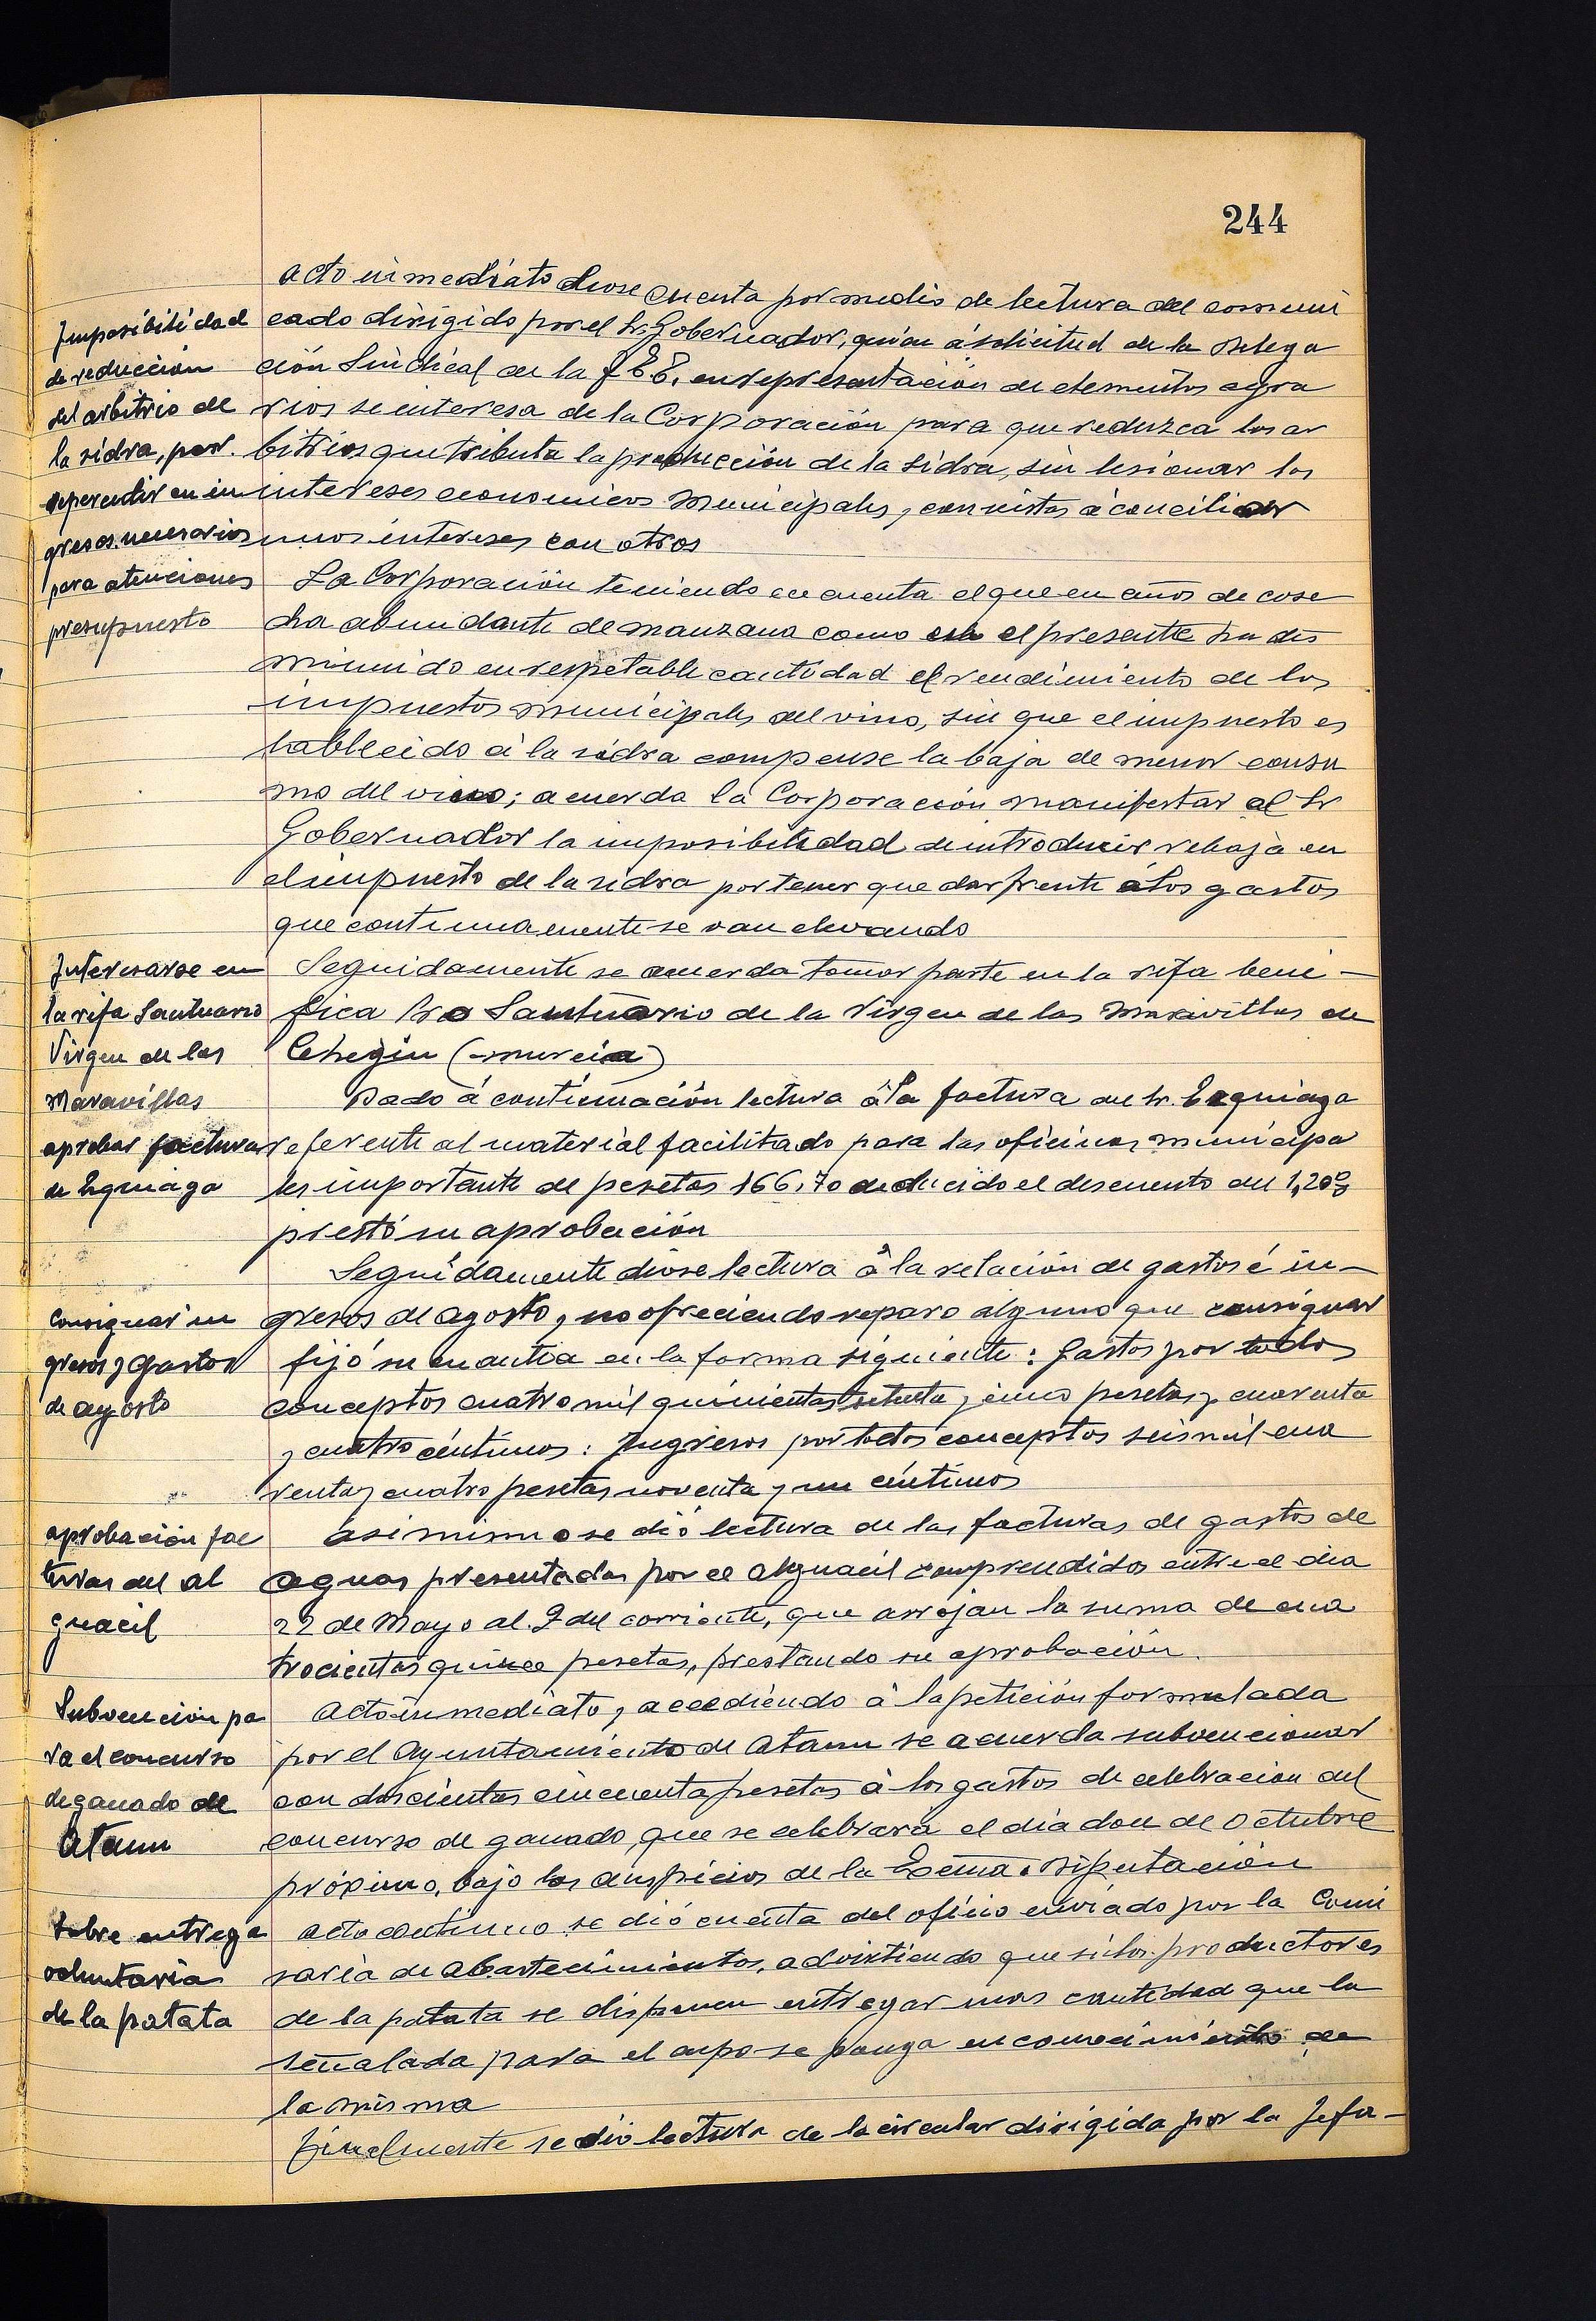 244
acto inmediato diose cuenta por medio de lectura del comuni
cado dirigido por el Sr. Gobernador, quien á solicitud de la Delega
ción Sindical de la F.E.T. en representación de elementos agra
rios se interesa de la Corporación para que reduzca los ar
bitrios que tributa la producción de la sidra, sin lesionar los
intereses economicos Municipales, con vistas á conciliar
unos intereses con otros
Imposibilidad
de reducción
del arbitrio de
la sidra, por
repercutir en in
gresos necesarios
para atenciones
presupuesto
La Corporación teniendo en cuenta el que en años de cose
cha abundante de manzana como en el presente ha dis
minuido en respetable cantidad el rendimiento de los
impuestos municipales del vino, sin que el impuesto es
tablecido á la sidra compense la baja de menor consu
mo del vino; acuerda la Corporación manifestar al Sr
Gobernador la imposibilidad de introducir rebaja en
el impuesto de la sidra por tener que dar frente á los gastos
que continuamente se van elevando
Interesarse en
la rifa Santuario
Virgen de las
Maravillas
Seguidamente se acuerda tomar parte en la rifa bené-
fica Pro Santuario de la Virgen de las Maravillas de
Cehegin (Murcia)
aprobar facturas
de Eguiaga
Dado á continuación lectura á la factura del Sr. Eguiaga
referente al material facilitado para las oficinas municipa
les importante de pesetas 166,70 deducido el descuento del 1,20%
prestó su aprobación
Consignar in
gresos y gastos
de agosto
Seguidamente diose lectura á la relación de gastos é in-
gresos de agosto, y no ofreciendo reparo alguno que consignar
fijó su cuantia en la forma siguiente: Gastos por todos
conceptos cuatro mil quinientas setenta y cinco pesetas y cuarenta
y cuatro céntimos: Ingresos por todos conceptos seis mil cua
renta y cuatro pesetas noventa y un céntimos
aprobación fac
turas del al
guacil
asi mismo se dió lectura de las facturas de gastos de
aguas presentadas por el alguacil comprendidos entre el dia
22 de Mayo al 9 del corriente, que arrojan la suma de cua
trocientas quince pesetas, prestando su aprobación.
Subvención pa
ra el concurso
de ganado de
Ataun
Acto inmediato, y accediendo á la petición formulada
por el Ayuntamiento de Ataun se acuerda subvencionar
con doscientas cincuenta pesetas á los gastos de celebración del
concurso de ganado, que se celebrara el dia doce de Octubre
próximo, bajo los auspicios de la Excma. Diputación
Sobre entrega
voluntaria
de la patata
acto continuo se dió cuenta del oficio enviado por la Comi
saria de Abastecimientos, advirtiendo que si los productores
de la patata se disponen entregar mas cantidad que la
señalada para el cupo se ponga en conocimiento de
la misma
Finalmente se dio lectura de la circular dirigida por la Jefa-